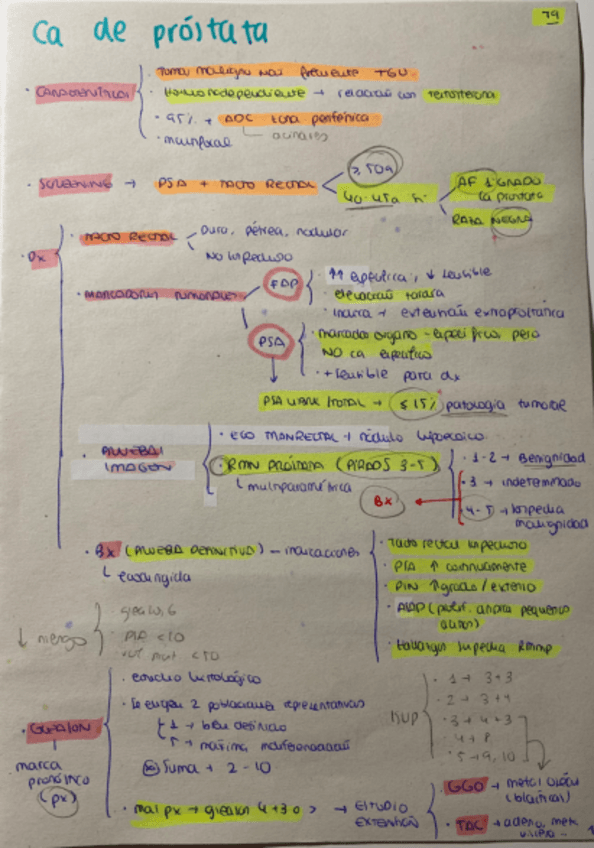 79
Ca de próstata
· CARACTERÍSTICAS
· Tumor maligno más frecuente TGU
· Hormonodependiente → relación con testosterona
· 95% → ADC zona periférica
acinares
· multifocal
· SCREENING → PSA + TACTO RECTAL
≥ 50a
40-45a si
AF 1º GRADO
ca próstata
RAZA NEGRA
· Dx
· TACTO RECTAL
Duro, pétrea, nodular
NO limpedido
· MARCADORES TUMORALES
FAP
· ↑↑ específica, ↓ sensible
· elevación tardía
· indica → extensión extraprostática
PSA
· marcador órgano-específico pero
NO ca específico
· + sensible para dx
PSA LIBRE/TOTAL → ≤ 15% patología tumoral
· PRUEBAS
IMAGEN
· ECO TRANSRECTAL → nódulo hipoecoico
· RMN PRÓSTATA (PIRADS 3-5)
multiparamétrica
· 1-2 → Benignidad
· 3 → indeterminado
· 4-5 → sospecha
malignidad
Bx
· Bx (PRUEBA DEFINITIVA) - indicaciones
ecodirigida
· Tacto rectal sospechoso
· PSA ↑ continuamente
· PIN ↑ grado / extenso
· ASAP (prolif. atípica pequeños
acinos)
· hallazgos sospecha RMmp
↓ riesgo
gleason 6
PSA < 10
· GLEASON
marca
pronóstico
(px)
· estudio histológico
· Se eligen 2 poblaciones representativas
1 → bien definido
5 → máxima
Suma → 2-10
· mal px → gleason 4+3 o > → ESTUDIO
EXTENSIÓN
ISUP
· 1 → 3+3
· 2 → 3+4
· 3 → 4+3
· 4 → 8
· 5 → 9, 10
GGO → metas óseas
(blásticas)
· TAC → adeno, mets
viscera..